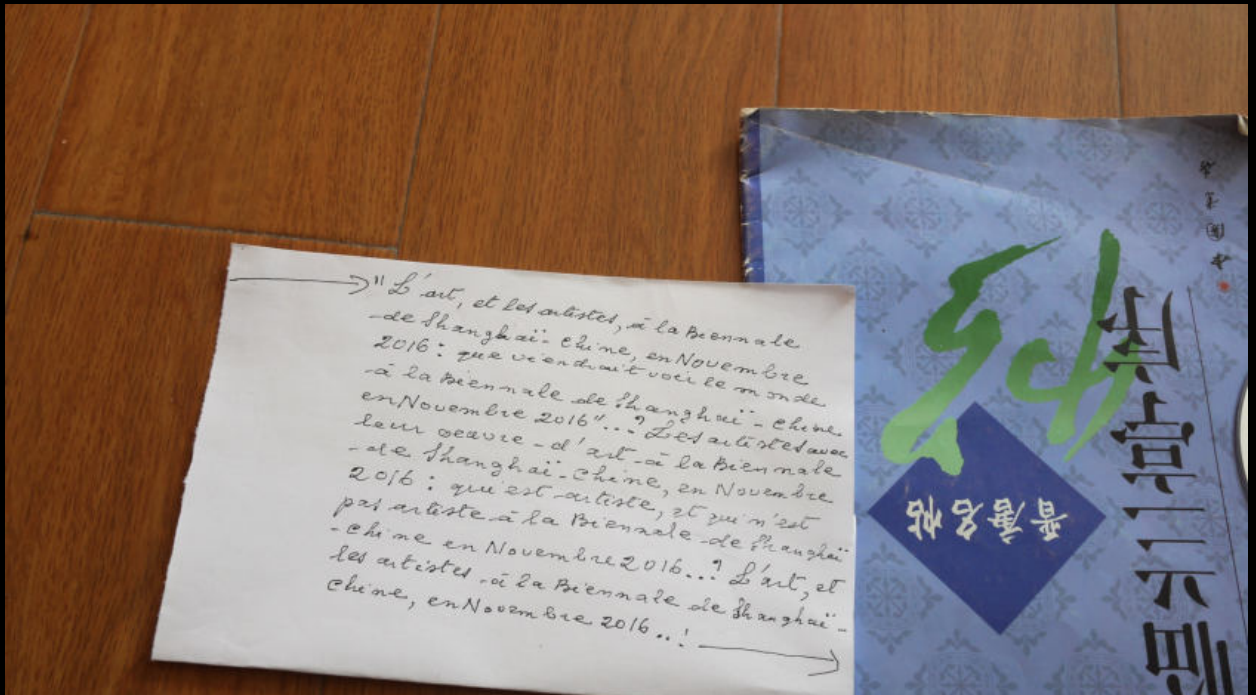 "L'art, et les artistes, à la Biennale
-de Shanghaï-Chine, en Novembre
2016 : que viendrait voir le monde
-à la Biennale de Shanghaï-Chine,
en Novembre 2016"...? Les artistes avec
leur oeuvre-d'art-à la Biennale
-de Shanghaï-Chine, en Novembre
2016 : qui est-artiste, et qui n'est
pas artiste-à la Biennale-de Shanghaï
-Chine en Novembre 2016...? L'art, et
les artistes-à la Biennale de Shanghaï-
Chine, en Novembre 2016..!
晋唐名帖